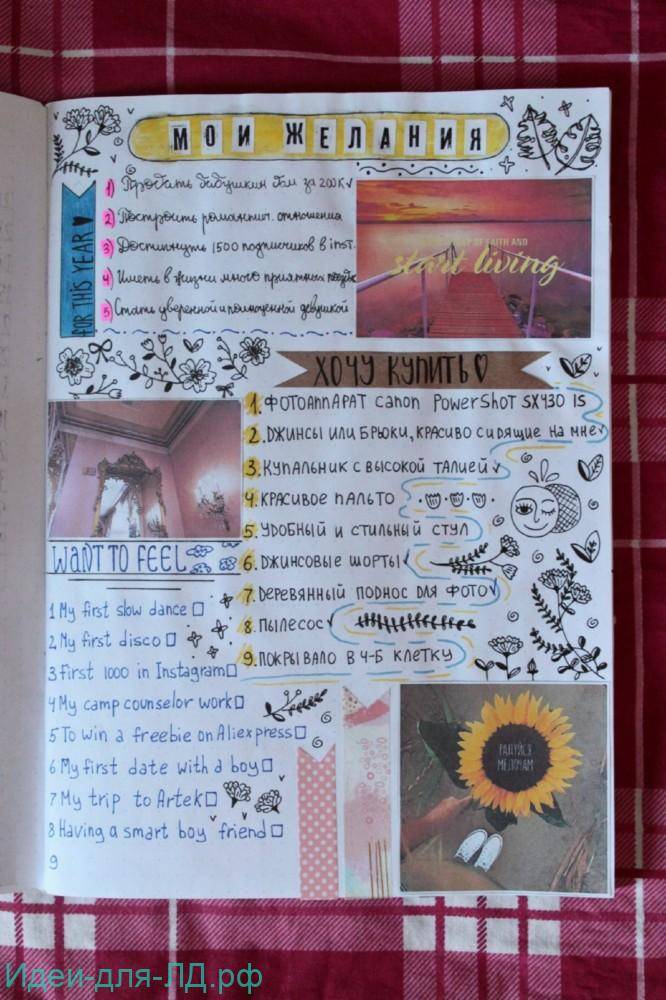 МОИ ЖЕЛАНИЯ
FOR THIS YEAR
1) Продать бабушкин дом за 200К
2) Построить романтич. отношения
3) Достигнуть 1500 подписчиков в inst.
4) Иметь в жизни много приятных
5) Стать уверенной и полноценной девушкой
OF FAITH AND
start living
ХОЧУ КУПИТЬ
1. ФОТОАППАРАТ canon PowerShot SX430 IS
2. ДЖИНСЫ ИЛИ БРЮКИ, КРАСИВО СИДЯЩИЕ НА МНЕ
3. КУПАЛЬНИК С ВЫСОКОЙ ТАЛИЕЙ
4. КРАСИВОЕ ПАЛЬТО
5. УДОБНЫЙ И СТИЛЬНЫЙ СТУЛ
6. ДЖИНСОВЫЕ ШОРТЫ
7. ДЕРЕВЯННЫЙ ПОДНОС ДЛЯ ФОТО
8. ПЫЛЕСОС
9. ПОКРЫВАЛО В Ч-Б КЛЕТКУ
WANT TO FEEL
1 My first slow dance
2 My first disco
3 First 1000 in Instagram
4 My camp counselor work
5 To win a freebie on Aliexpress
6 My first date with a boy
7 My trip to Artek
8 Having a smart boy friend
9
РАДУЙСЯ
МЕЛОЧАМ
Идеи-для-ЛД.рф